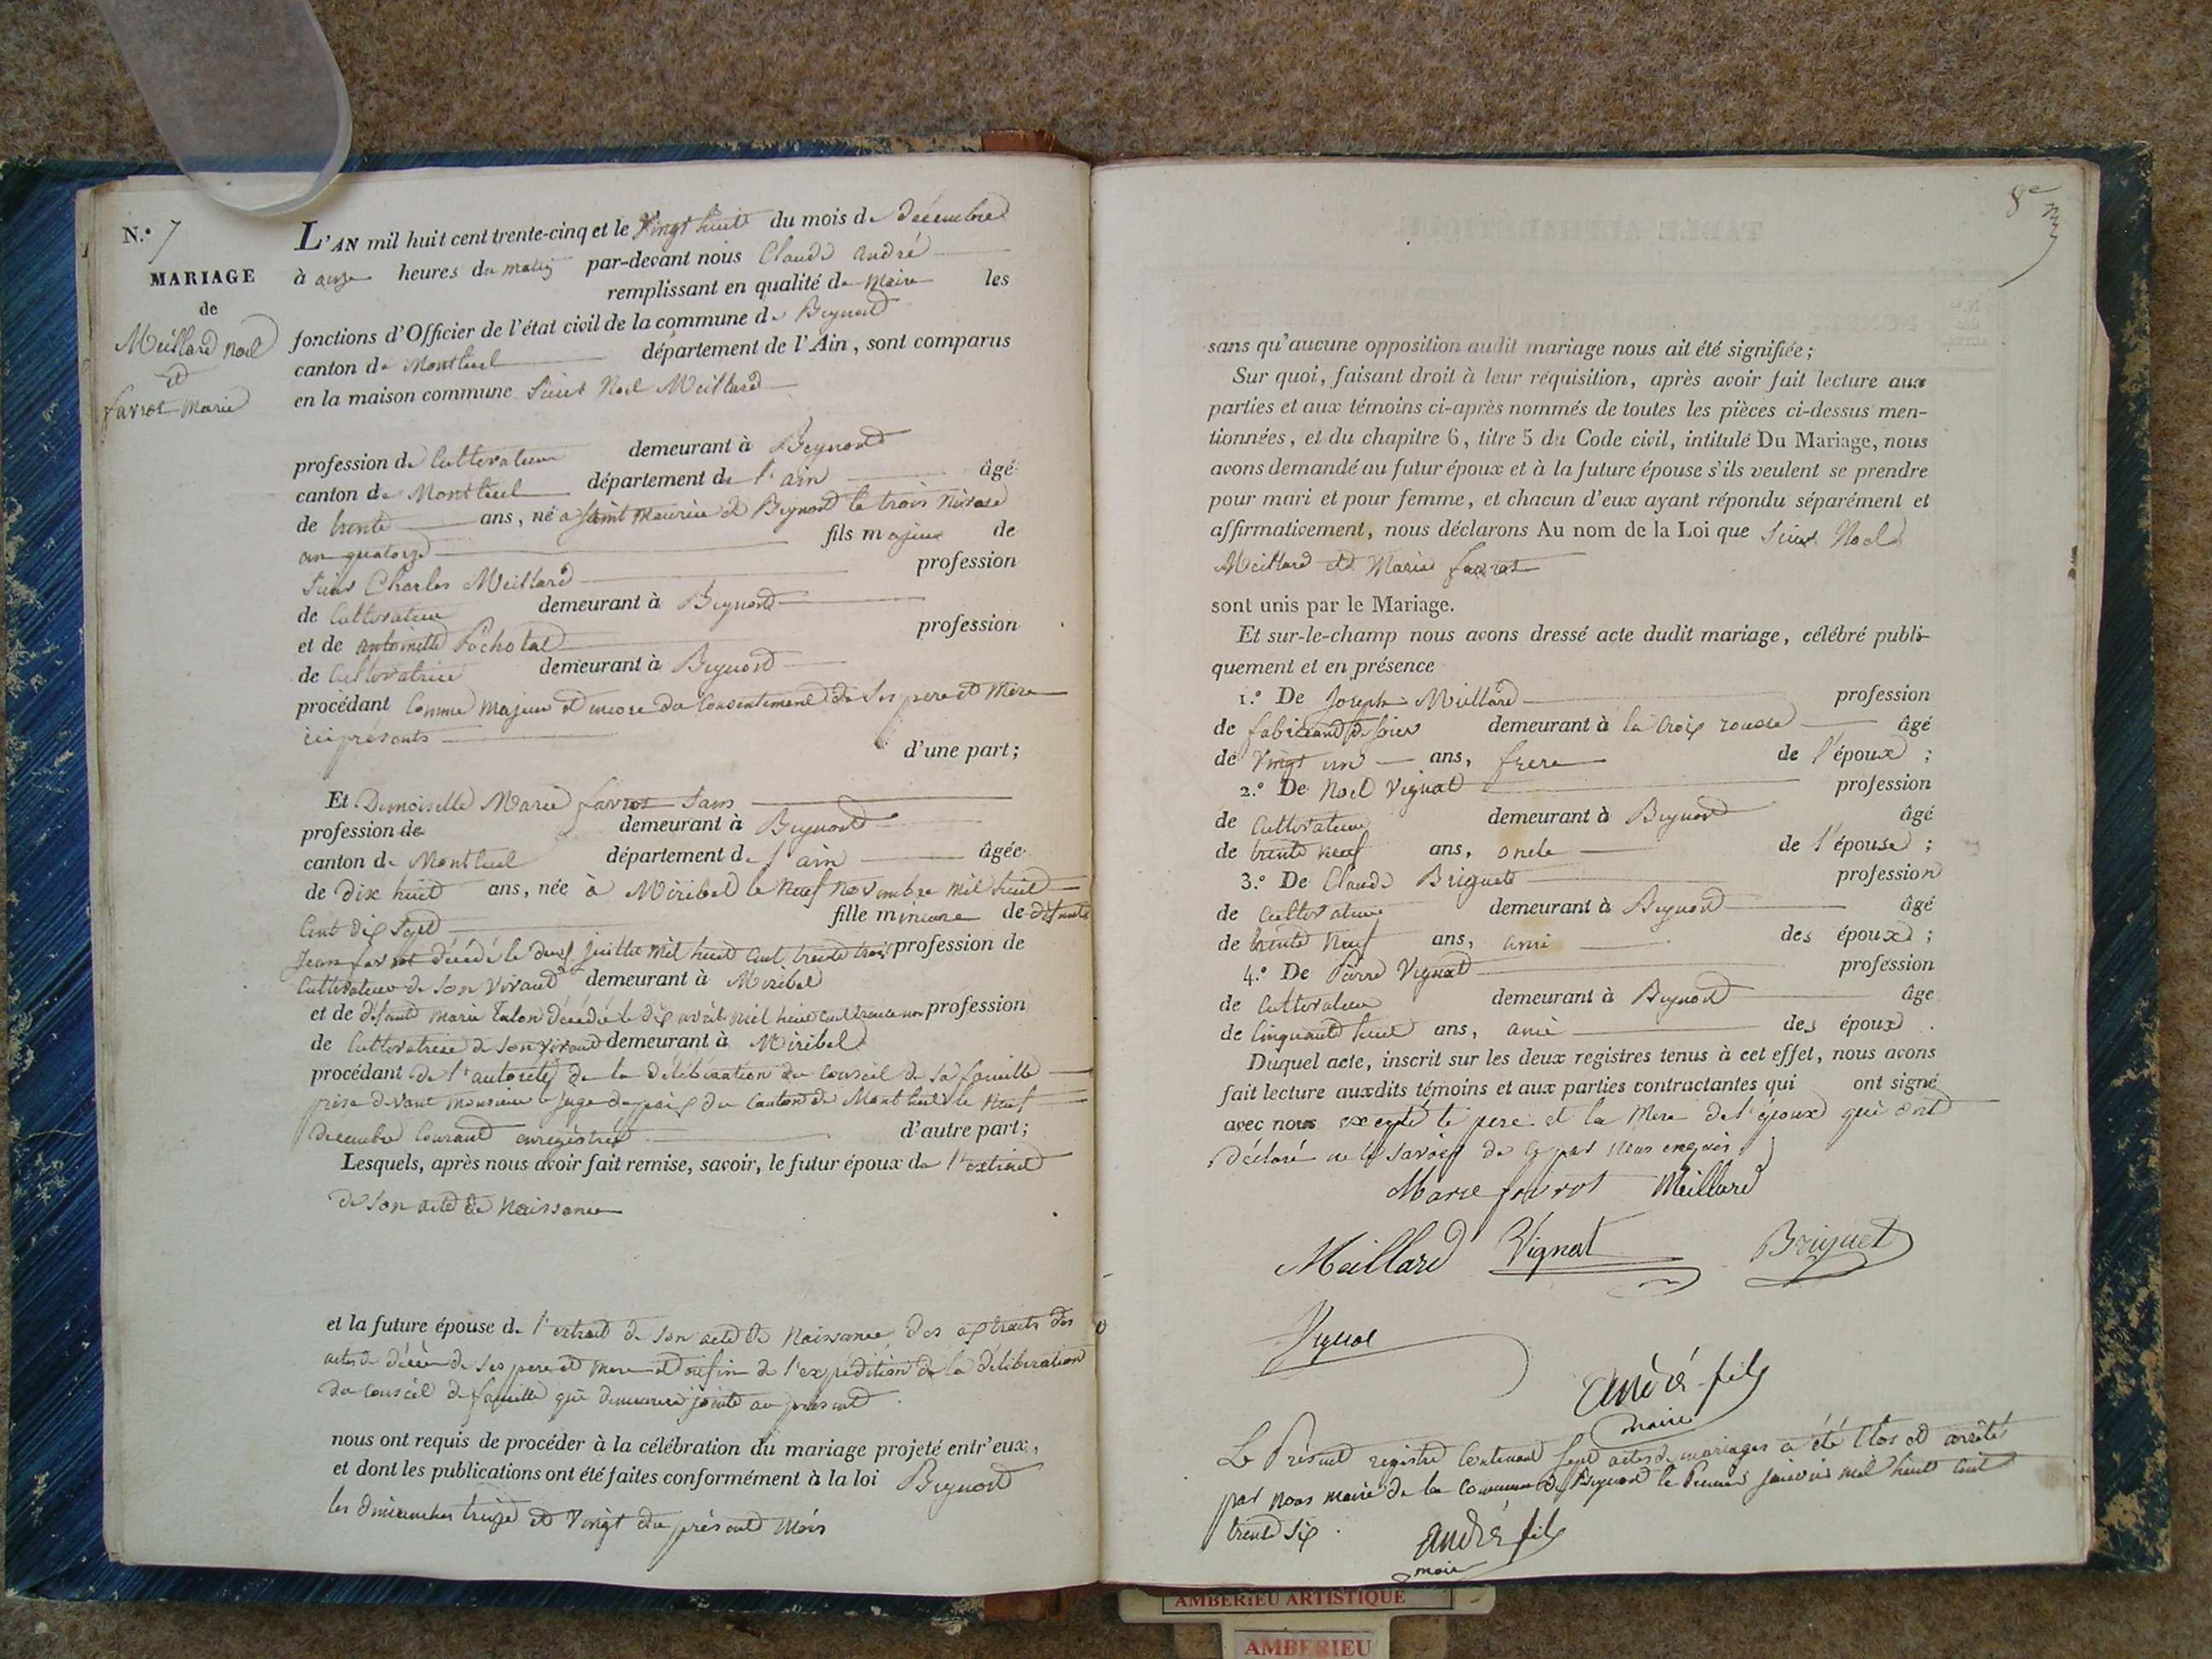 N.° 7
MARIAGE
de
Meillard noel
et
favrot Marie
L'AN mil huit cent trente-cinq et le Vingt huit du mois de décembre
à onze heures du matin par-devant nous Claude andré
remplissant en qualité de Maire les
fonctions d'Officier de l'état civil de la commune de Beynost
canton de Montluel département de l'Ain, sont comparus
en la maison commune Sieur Noel Meillard
profession de Cultivateur demeurant à Beynost
canton de Montluel département de l'ain âgé
de trente ans, né a Saint Maurice de Beynost le trois Nivose
an quatorze fils majeur de
Sieur Charles Meillard profession
de Cultivateur demeurant à Beynost
et de antoinette Pochotal profession
de Cultivatrice demeurant à Beynost
procédant Comme Majeur et encore du Consentement de Ses pere et Mère
ici présents d'une part;
Et Demoiselle Marie favrot Sans
profession de demeurant à Beynost
canton de Montluel département de l'ain âgée
de dix huit ans, née à Miribel le Neuf Novembre Mil huit
Cent dix Sept fille mineure de défunts
Jean favrot décédé le deux juillet Mil huit Cent trente trois profession de
Cultivateur de Son Vivant demeurant à Miribel
et de défunte Marie Talon décédée le dix avril Mil huit Cent trente un profession
de Cultivatrice de Son vivant demeurant à Miribel
procédant de l'autorité de la délibération du Conseil de Sa famille
prise devant Monsieur le Juge de paix du Canton de Montluel le Neuf
décembre Courant enregistrée d'autre part;
Lesquels, après nous avoir fait remise, savoir, le futur époux de l'extrait
de Son acte de Naissance
et la future épouse de l'extrait de Son acte de Naissance des extraits des
actes de décès de Ses pere et Mere et enfin de l'expédition de la délibération
du Conseil de famille qui demeurera jointe au présent.
nous ont requis de procéder à la célébration du mariage projeté entr'eux,
et dont les publications ont été faites conformément à la loi Beynost
les dimanches treize et Vingt du présent Mois
8e
sans qu'aucune opposition audit mariage nous ait été signifiée;
Sur quoi, faisant droit à leur réquisition, après avoir fait lecture aux
parties et aux témoins ci-après nommés de toutes les pièces ci-dessus men-
tionnées, et du chapitre 6, titre 5 du Code civil, intitulé Du Mariage, nous
avons demandé au futur époux et à la future épouse s'ils veulent se prendre
pour mari et pour femme, et chacun d'eux ayant répondu séparément et
affirmativement, nous déclarons Au nom de la Loi que Sieur Noel
Meillard et Marie favrot
sont unis par le Mariage.
Et sur-le-champ nous avons dressé acte dudit mariage, célébré publi-
quement et en présence
1.° De Joseph Meillard profession
de fabricant de Soies demeurant à la Croix rousse âgé
de Vingt un ans, frere de l'époux;
2.° De Noel Vignat profession
de Cultivateur demeurant à Beynost âgé
de trente neuf ans, oncle de l'épouse;
3.° De Claude Briguet profession
de Cultivateur demeurant à Beynost âgé
de trente Neuf ans, ami des époux;
4.° De Pierre Vignat profession
de Cultivateur demeurant à Beynost âgé
de Cinquante huit ans, ami des époux.
Duquel acte, inscrit sur les deux registres tenus à cet effet, nous avons
fait lecture auxdits témoins et aux parties contractantes qui ont signé
avec nous excepté le pere et la Mere de l'époux qui ont
déclaré ne le Savoir de ce par nous enquis
Marie favrot Meillard
Meillard Vignat Briguet
Vignat
André fils
maire
Le Présent registre Contenant Sept actes de mariages a été Clos et arrêté
par nous maire de la Commune de Beynost le Premier janvier mil huit Cent
trente Six.
André fils
maire
AMBERIEU ARTISTIQUE
AMBERIEU